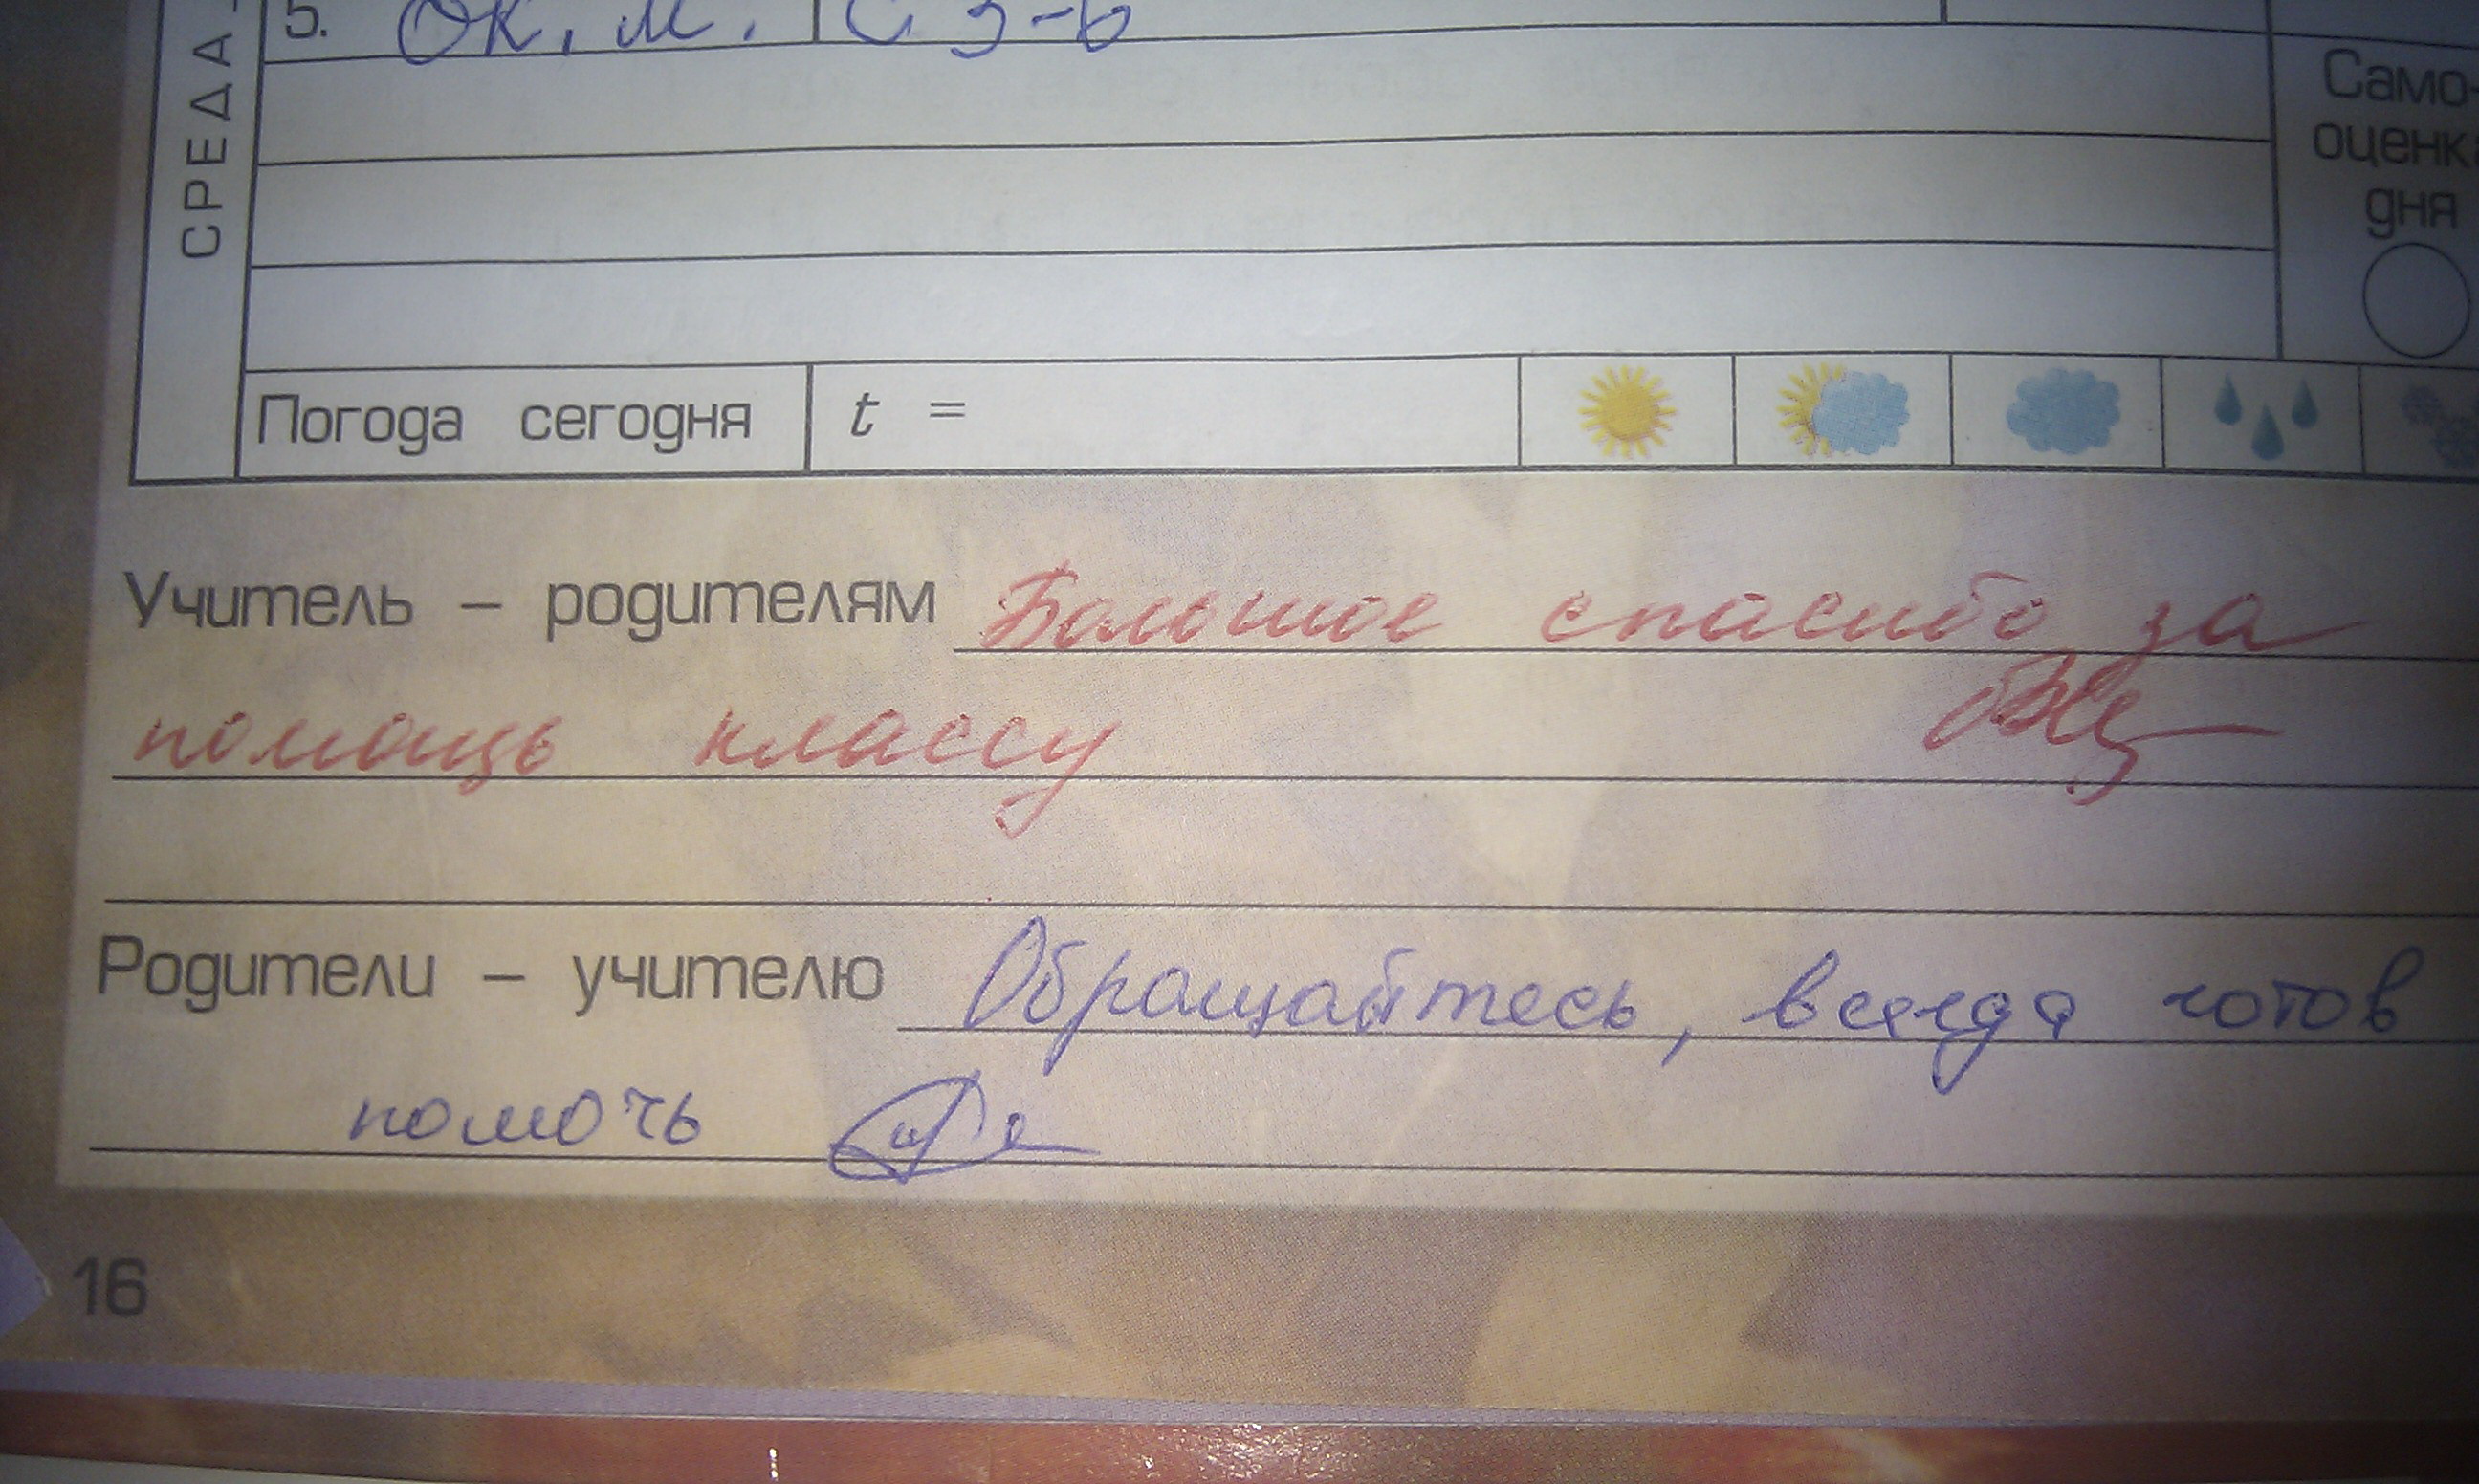 СРЕДА
5. Ок. м. С 3-6
Само-
оценка
дня
Погода сегодня t =
Учитель – родителям Большое спасибо за
помощь классу
Родители – учителю Обращайтесь, всегда готов
помочь
16